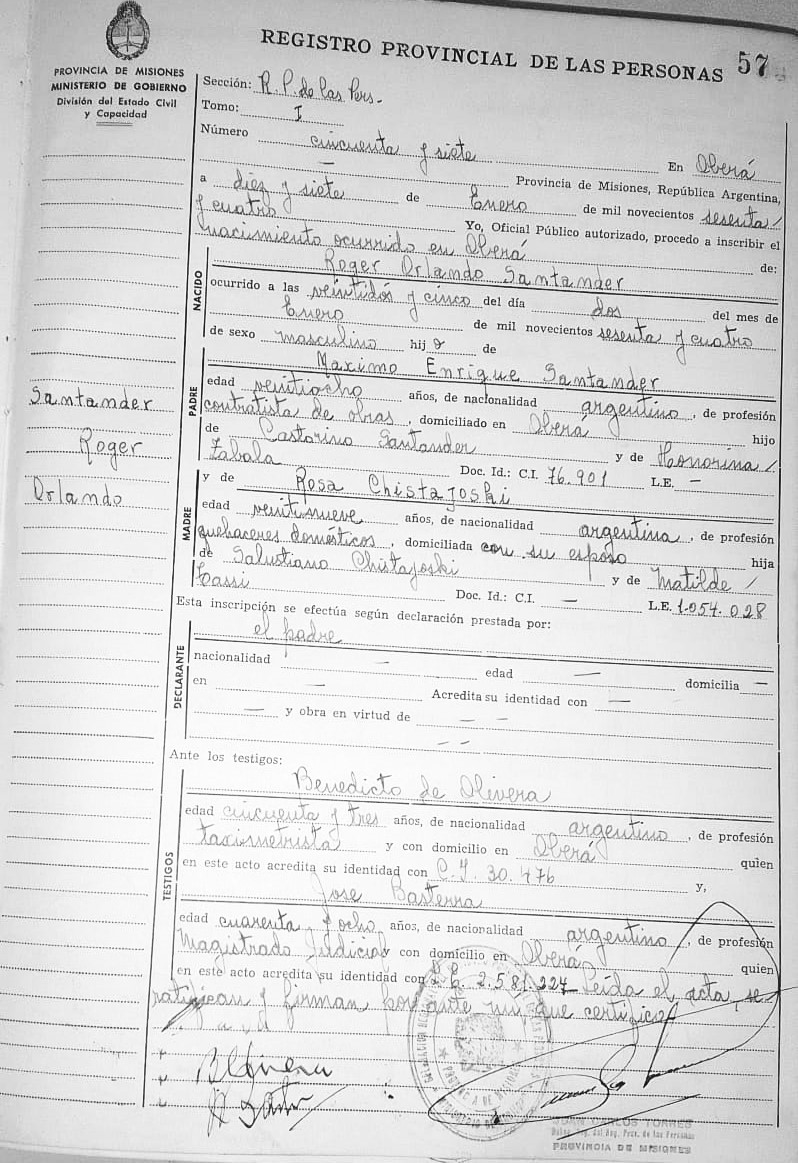 REGISTRO PROVINCIAL DE LAS PERSONAS 57
PROVINCIA DE MISIONES
MINISTERIO DE GOBIERNO
División del Estado Civil
y Capacidad
Sección: R. P. de las Pers.
Tomo: I
Número cincuenta y siete En Oberá
— Provincia de Misiones, República Argentina,
a diez y siete de Enero de mil novecientos sesenta /
y cuatro Yo, Oficial Público autorizado, procedo a inscribir el
nacimiento ocurrido en Oberá de:
NACIDO
Roger Orlando Santander
ocurrido a las veintidós y cinco del día dos del mes de
Enero de mil novecientos sesenta y cuatro
de sexo masculino hijo de
PADRE
Maximo Enrique Santander
edad veintiocho años, de nacionalidad argentino, de profesión
contratista de obras, domiciliado en Oberá hijo
de Castorino Santander y de Honorina /
Zabala Doc. Id.: C.I. 76.901 L.E. —
Santander
Roger
Orlando
MADRE
y de Rosa Chistajoski
edad veintinueve años, de nacionalidad argentina, de profesión
quehaceres domésticos, domiciliada con su esposo hija
de Salustiano Chistajoski y de Matilde /
Cassi Doc. Id.: C.I. — L.E. 1.054.028
Esta inscripción se efectúa según declaración prestada por:
DECLARANTE
el padre
nacionalidad — edad — domicilia —
en — Acredita su identidad con —
— y obra en virtud de — —
— —
Ante los testigos:
TESTIGOS
Benedicto de Olivera
edad cincuenta y tres años, de nacionalidad argentino, de profesión
taximetrista y con domicilio en Oberá quien
en este acto acredita su identidad con C.I. 30.476 y,
Jose Basterra
edad cuarenta y ocho años, de nacionalidad argentino, de profesión
Magistrado Judicial y con domicilio en Oberá quien
en este acto acredita su identidad con L.E. 2.581.227 Leída el acta, se
ratifican y firman por ante mí, que certifico
B Olivera
JUAN CARLOS TORRES
PROVINCIA DE MISIONES